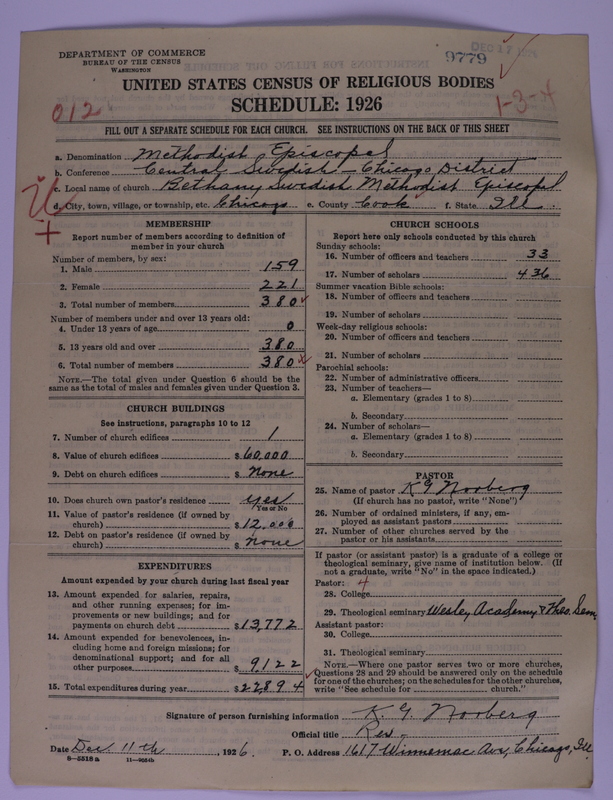 DEPARTMENT OF COMMERCE
BUREAU OF THE CENSUS
WASHINGTON
9779
UNITED STATES CENSUS OF RELIGIOUS BODIES
SCHEDULE: 1926
012
1-3-4
FILL OUT A SEPARATE SCHEDULE FOR EACH CHURCH. SEE INSTRUCTIONS ON THE BACK OF THIS SHEET
a. Denomination Methodist Episcopal
b. Conference Central Swedish - Chicago District
c. Local name of church Bethany Swedish Methodist Episcopal
d. City, town, village, or township, etc. Chicago e. County Cook f. State Ill.
MEMBERSHIP
Report number of members according to definition of
member in your church
Number of members, by sex:
1. Male 159
2. Female 221
3. Total number of members 380
Number of members under and over 13 years old:
4. Under 13 years of age 0
5. 13 years old and over 380
6. Total number of members 380
NOTE.—The total given under Question 6 should be
same as the total of males and females given under Question 3.
CHURCH BUILDINGS
See instructions, paragraphs 10 to 12
7. Number of church edifices 1
8. Value of church edifices $60,000
9. Debt on church edifices $ None
10. Does church own pastor's residence yes
Yes or No
11. Value of pastor's residence (if owned by
church) $12,000
12. Debt on pastor's residence (if owned by
church) $ none
EXPENDITURES
Amount expended by your church during last fiscal year
13. Amount expended for salaries, repairs,
and other running expenses; for im-
provements or new buildings; and for
payments on church debt $13,772
14. Amount expended for benevolences, in-
cluding home and foreign missions; for
denominational support; and for all
other purposes $9122
15. Total expenditures during year $22894
CHURCH SCHOOLS
Report here only schools conducted by this church
Sunday schools:
16. Number of officers and teachers 33
17. Number of scholars 436
Summer vacation Bible schools:
18. Number of officers and teachers
19. Number of scholars
Week-day religious schools:
20. Number of officers and teachers
21. Number of scholars
Parochial schools:
22. Number of administrative officers
23. Number of teachers—
a. Elementary (grades 1 to 8)
b. Secondary
24. Number of scholars—
a. Elementary (grades 1 to 8)
b. Secondary
PASTOR
25. Name of pastor K G Norberg
(If church has no pastor, write "None")
26. Number of ordained ministers, if any, em-
ployed as assistant pastors
27. Number of other churches served by the
pastor or his assistants
If pastor (or assistant pastor) is a graduate of a college or
theological seminary, give name of institution below. (If
not a graduate, write "No" in the space indicated.)
Pastor: 4
28. College
29. Theological seminary Wesley Academy & Theo. Sem.
Assistant pastor:
30. College
31. Theological seminary
NOTE.—Where one pastor serves two or more churches,
Questions 28 and 29 should be answered only on the schedule
for one of the churches; on the schedules for the other churches,
write "See schedule for church."
Signature of person furnishing information K. G. Norberg
Official title Rev.
Date Dec 11th, 1926. P. O. Address 1617 Winnemac Ave, Chicago, Ill
8-5516 a